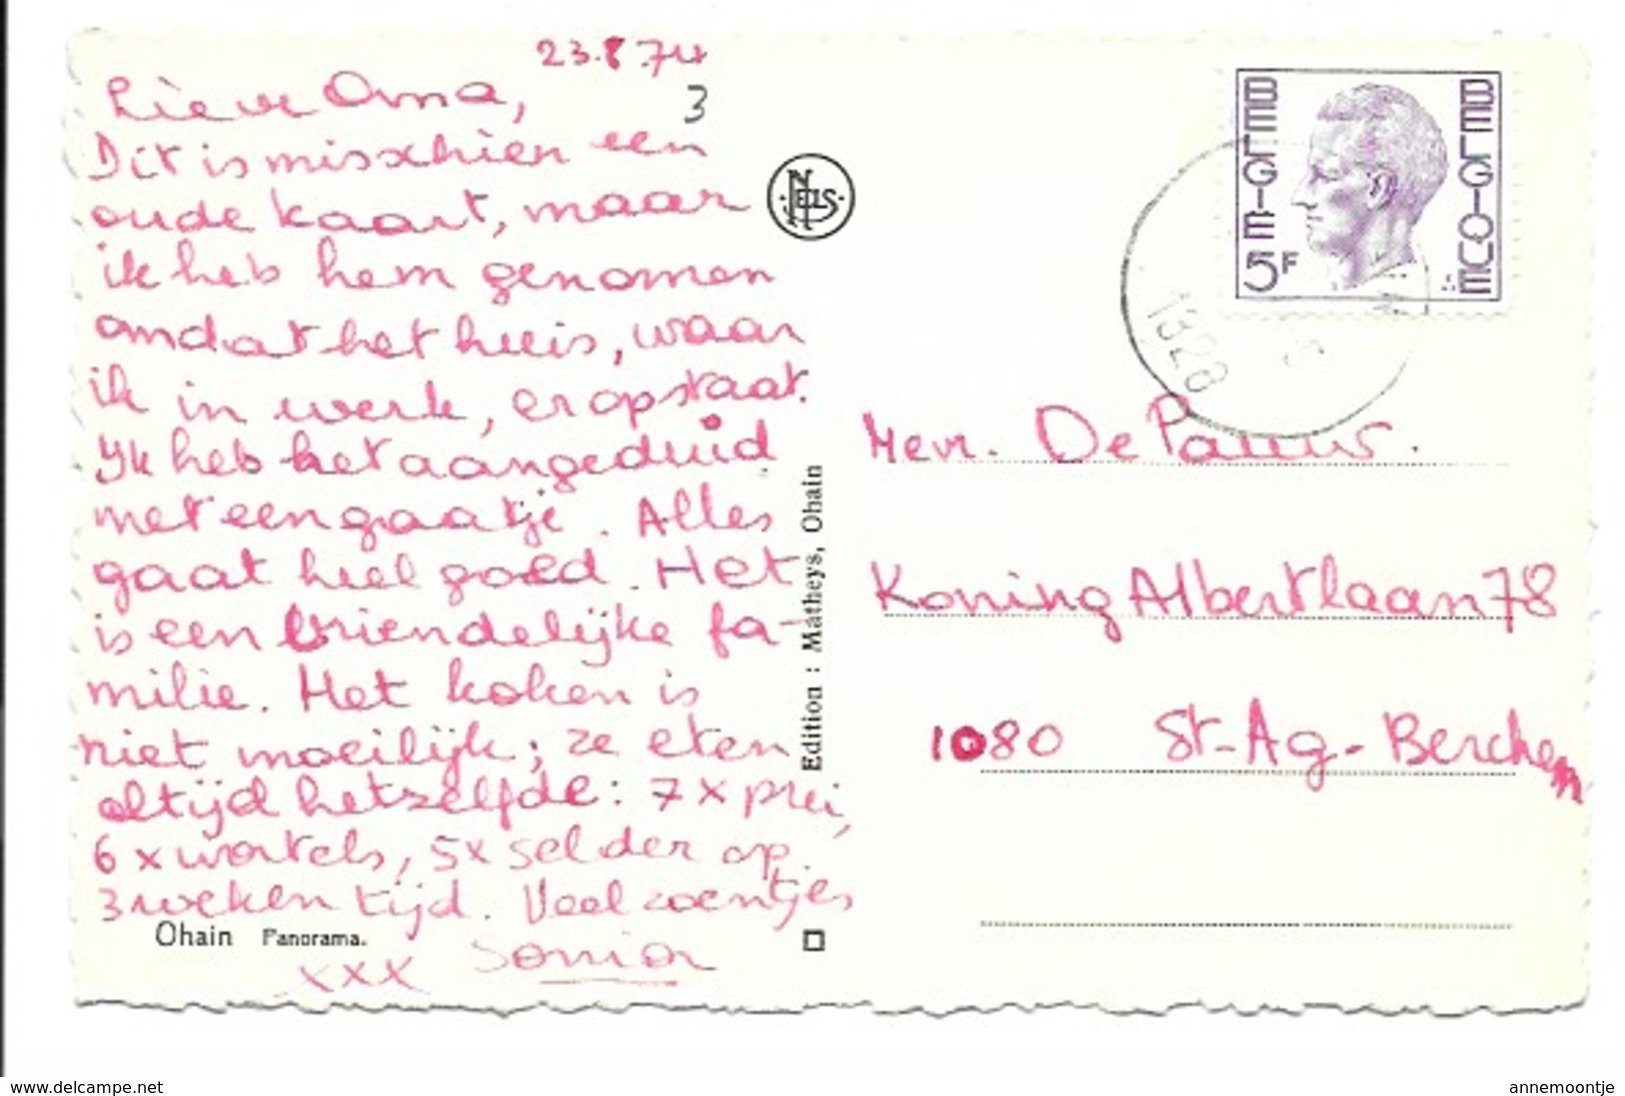 23.8.74
3
Lieve Oma,
Dit is misschien een
oude kaart, maar
ik heb hem genomen
omdat het huis, waar
ik in werk, er op staat.
Ik heb het aangeduid
met een gaatje. Alles
gaat heel goed. Het
is een vriendelijke fa-
milie. Het koken is
niet moeilijk; ze eten
altijd hetzelfde: 7 x prei,
6 x wortels, 5x selder op
3 weken tijd. Veel zoentjes
Sonia
xxx
Ohain Panorama.
NELS
Edition : Matheys, Ohain
BELGIE 5F BELGIQUE
1328
Mevr. De Pauw.
Koning Albertlaan 78
1080 St-Ag-Berchem
www.delcampe.net
annemoontje